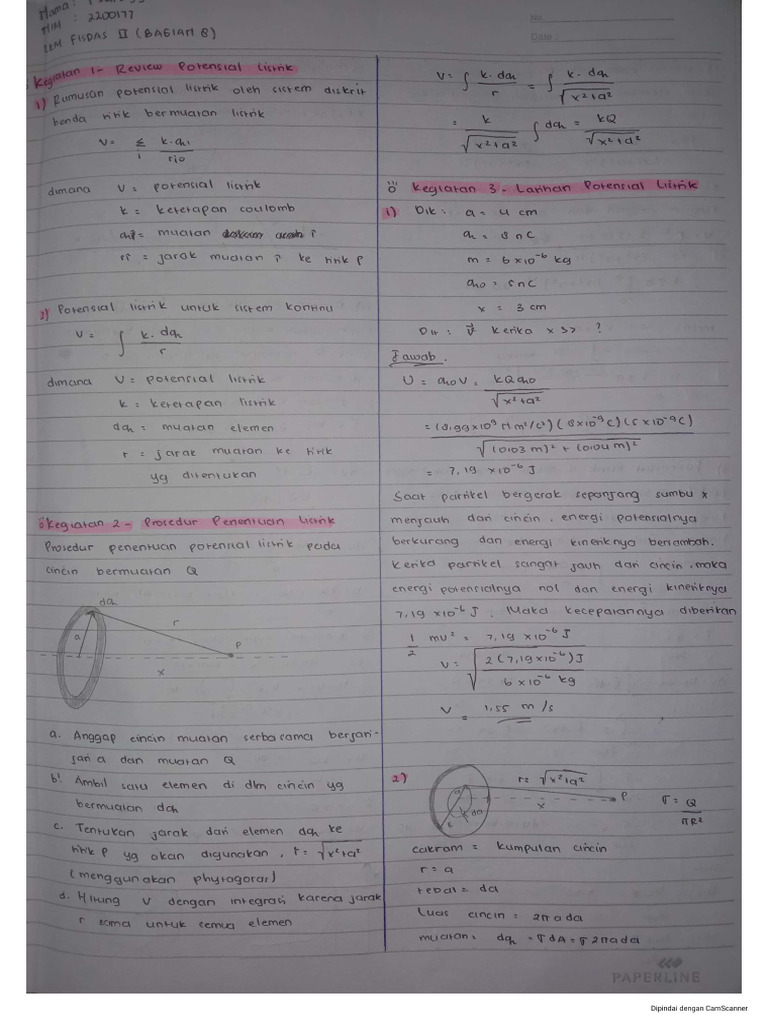 Nama :
NIM : 2200177
LKM FISDAS II (BAGIAN 8)
No
Date :
Kegiatan 1 - Review Potensial Listrik
1) Rumusan potensial listrik oleh sistem diskrit
benda titik bermuatan listrik
V = Σ i k.qi / rio
dimana V = potensial listrik
k = ketetapan coulomb
qi = muatan i
ri = jarak muatan i ke titik P
2) Potensial listrik untuk sistem kontinu
V = ∫ k.dq / r
dimana V = potensial listrik
k = ketetapan listrik
dq = muatan elemen
r = jarak muatan ke titik
yg ditentukan
Kegiatan 2 - Prosedur Penentuan Listrik
Prosedur penentuan potensial listrik pada
cincin bermuatan Q
dq
r
a
P
x
a. Anggap cincin muatan serba sama berjari-
jari a dan muatan Q
b. Ambil satu elemen di dlm cincin yg
bermuatan dq
c. Tentukan jarak dari elemen dq ke
titik P yg akan digunakan, r = √x²+a²
(menggunakan phytagoras)
d. Hitung V dengan integrasi karena jarak
r sama untuk semua elemen
V = ∫ k.dq / r = ∫ k.dq / √x²+a²
= k / √x²+a² ∫ dq = kQ / √x²+a²
Kegiatan 3 - Latihan Potensial Listrik
1) Dik : a = 4 cm
q = 8 nC
m = 6 x 10⁻⁶ kg
q0 = 5 nC
x = 3 cm
Dit : v ketika x >> ?
Jawab.
U = q0 V = kQq0 / √x²+a²
= (8,99x10⁹ Nm²/C²) (8x10⁻⁹C) (5x10⁻⁹C) / √(0,03 m)² + (0,04 m)²
= 7,19 x10⁻⁶ J
Saat partikel bergerak sepanjang sumbu x
menjauh dari cincin, energi potensialnya
berkurang dan energi kinetiknya bertambah.
Ketika partikel sangat jauh dari cincin, maka
energi potensialnya nol dan energi kinetiknya
7,19 x10⁻⁶ J. Maka kecepatannya diberikan
1/2 mv² = 7,19 x10⁻⁶ J
v = √2(7,19x10⁻⁶)J / 6x10⁻⁶ kg
v = 1,55 m/s
2)
r = √x²+a²
a
x
P
da
R
σ = Q / πR²
cakram = kumpulan cincin
r = a
tebal = da
Luas cincin = 2πa da
muatan : dq = σ dA = σ 2πa da
PAPERLINE
Dipindai dengan CamScanner